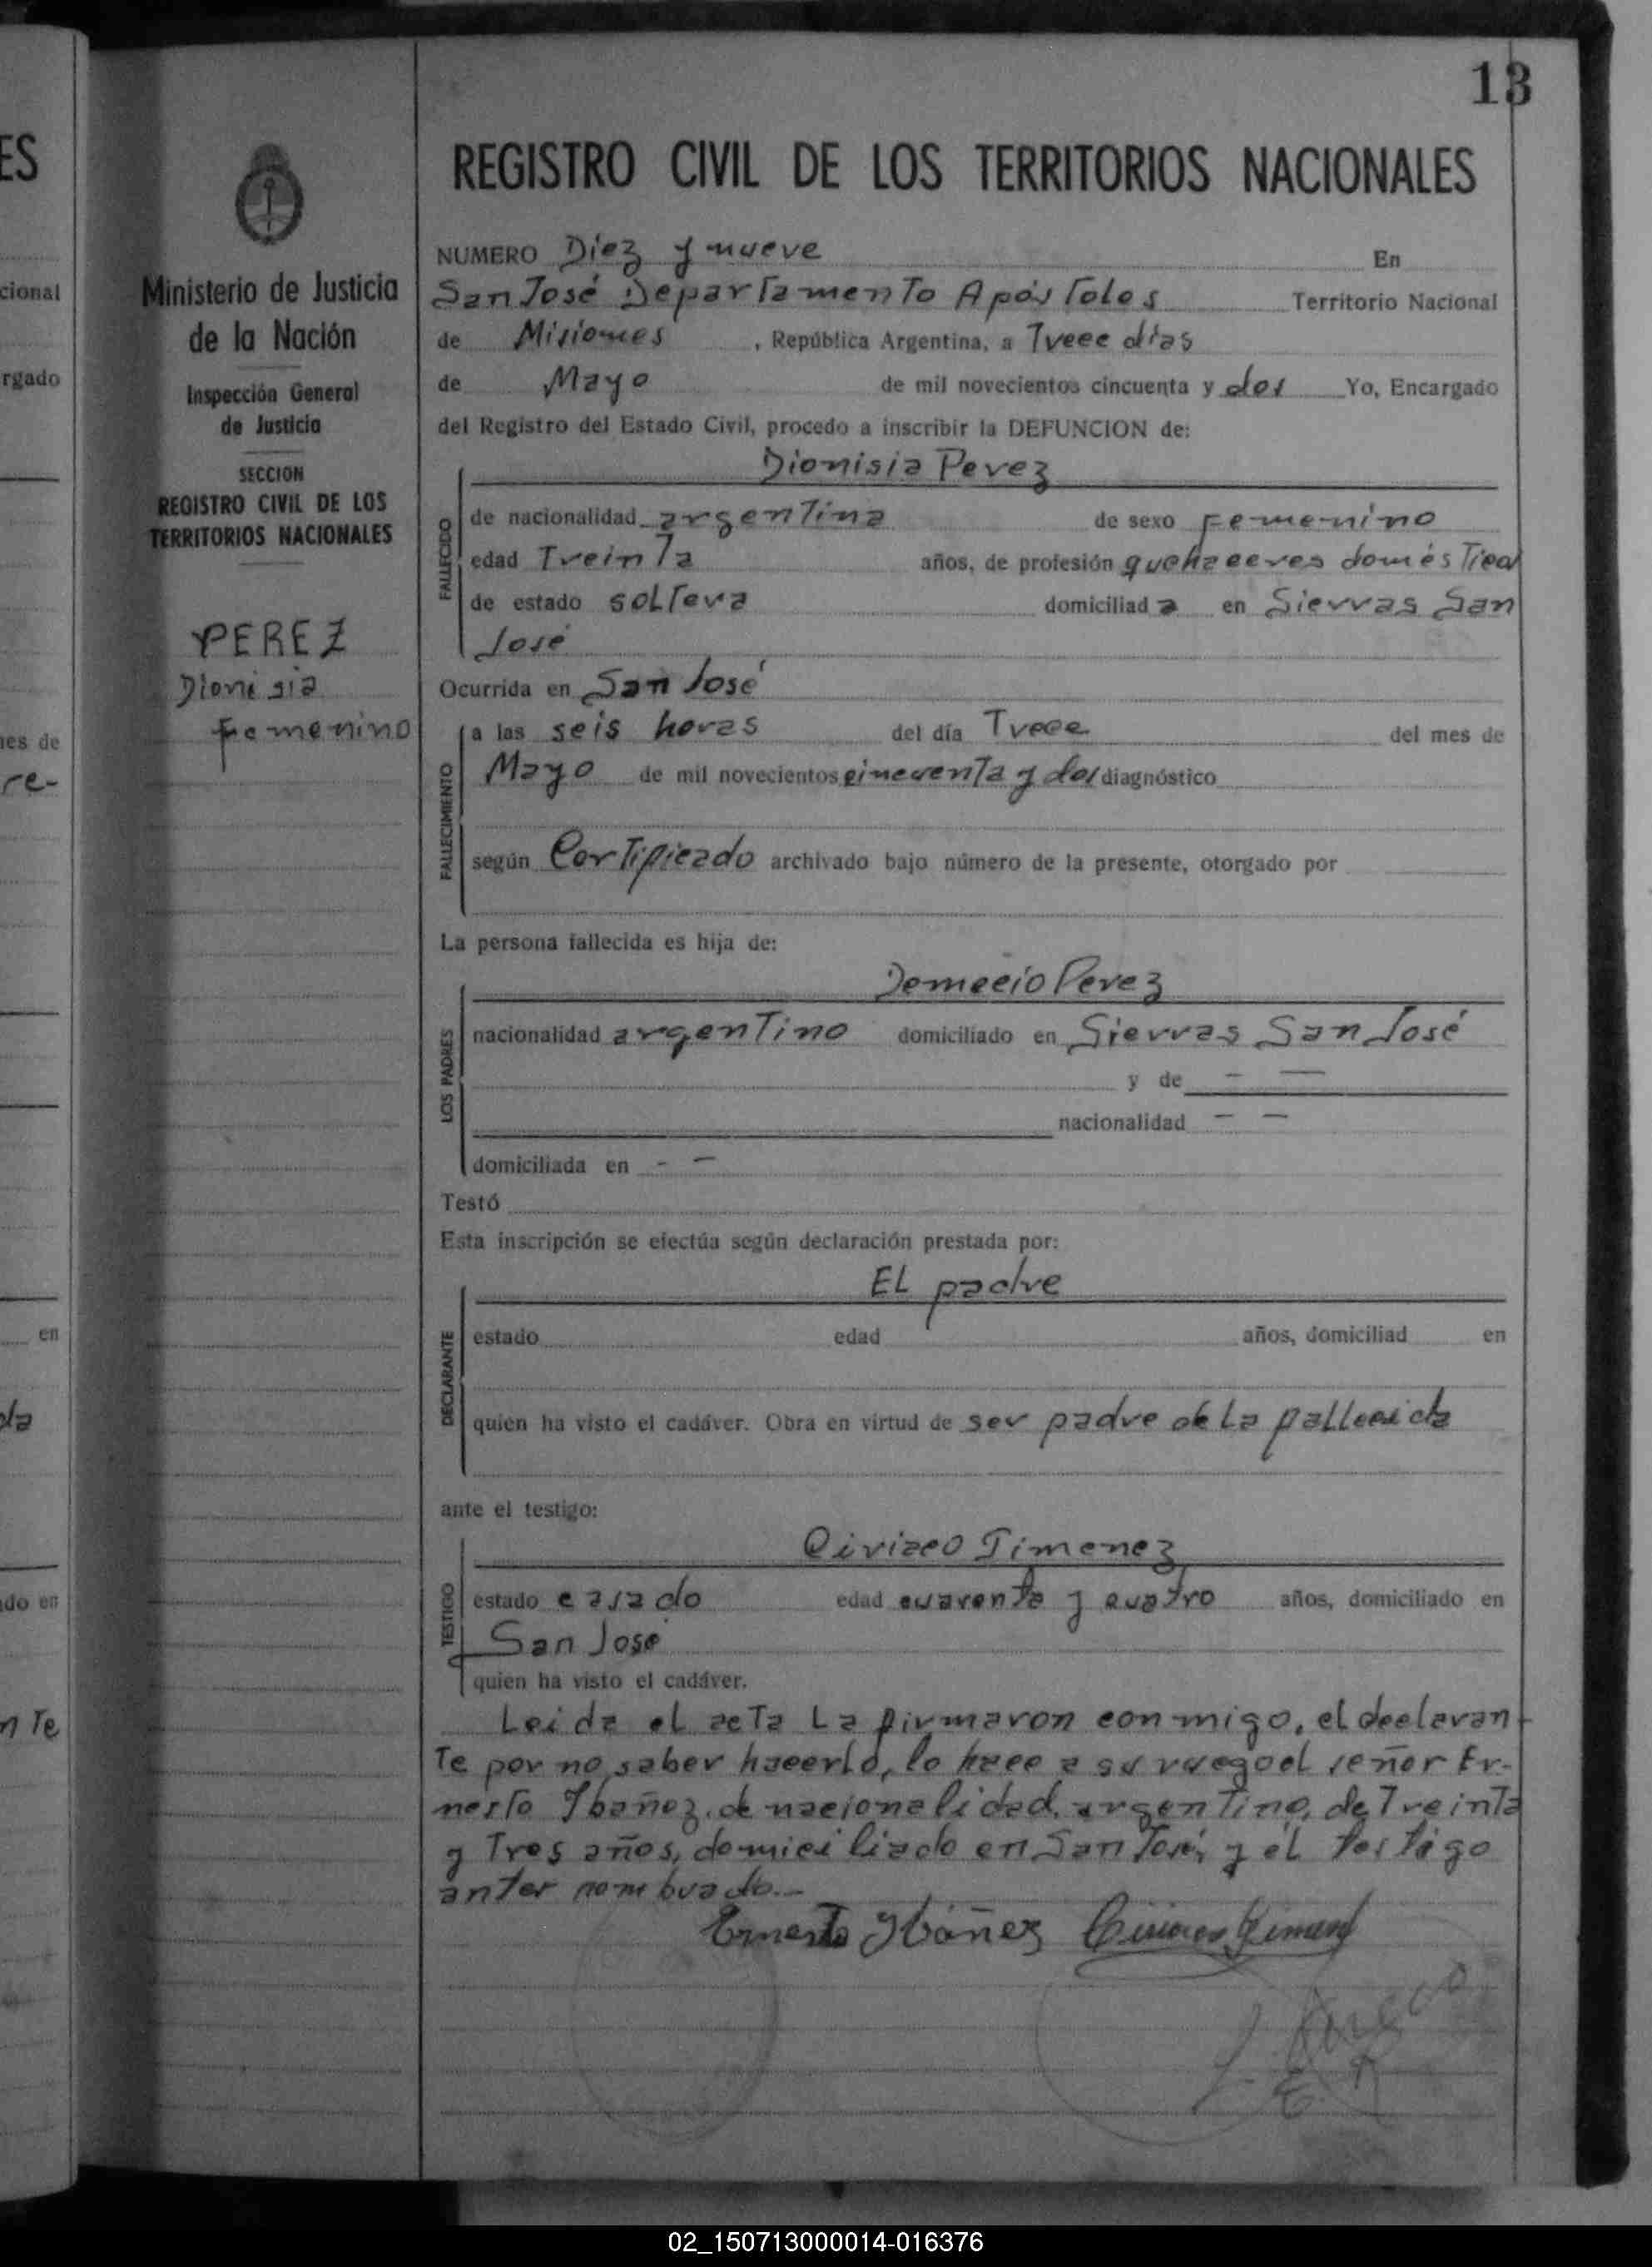 13
ES
REGISTRO CIVIL DE LOS TERRITORIOS NACIONALES
Ministerio de Justicia
de la Nación
Inspección General
de Justicia
SECCION
REGISTRO CIVIL DE LOS
TERRITORIOS NACIONALES
PEREZ
Dionisia
Femenino
cional
rgado
nes de
re-
en
da
do en
n Te
NUMERO Diez y nueve En
San José Departamento Apóstoles Territorio Nacional
de Misiones , República Argentina, a Trece días
de Mayo de mil novecientos cincuenta y dos Yo, Encargado
del Registro del Estado Civil, procedo a inscribir la DEFUNCION de:
Dionisia Perez
FALLECIDO
de nacionalidad argentina de sexo Femenino
edad Treinta años, de profesión quehaceres domésticos
de estado soltera domiciliad a en Sierras San
José
Ocurrida en San José
FALLECIMIENTO
a las seis horas del día Trece del mes de
Mayo de mil novecientos cincuenta y dos diagnóstico
según Certificado archivado bajo número de la presente, otorgado por
La persona fallecida es hija de:
Demecio Perez
LOS PADRES
nacionalidad argentino domiciliado en Sierras San José
y de - —
nacionalidad - —
domiciliada en - —
Testó
Esta inscripción se efectúa según declaración prestada por:
EL padre
DECLARANTE
estado edad años, domiciliad en
quien ha visto el cadáver. Obra en virtud de ser padre de La fallecida
ante el testigo:
Ciriaco Jimenez
TESTIGO
estado casado edad cuarenta y cuatro años, domiciliado en
San José
quien ha visto el cadáver.
Leida el acta La firmaron conmigo, el declaran-
Te por no saber hacerlo, lo hace a su ruego el señor Er-
nesto Ibañez, de nacionalidad argentino, de Treinta
y Tres años, domiciliado en San José, y el testigo
antes nombrado.-
Ernesto Ybáñez Ciriaco Jimenez
02_150713000014-016376